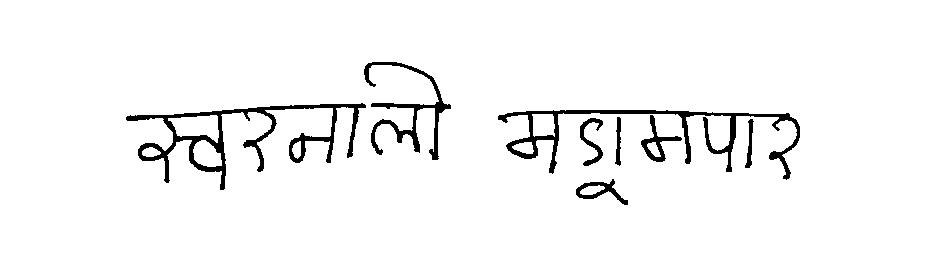 स्वरनाली मडामपार